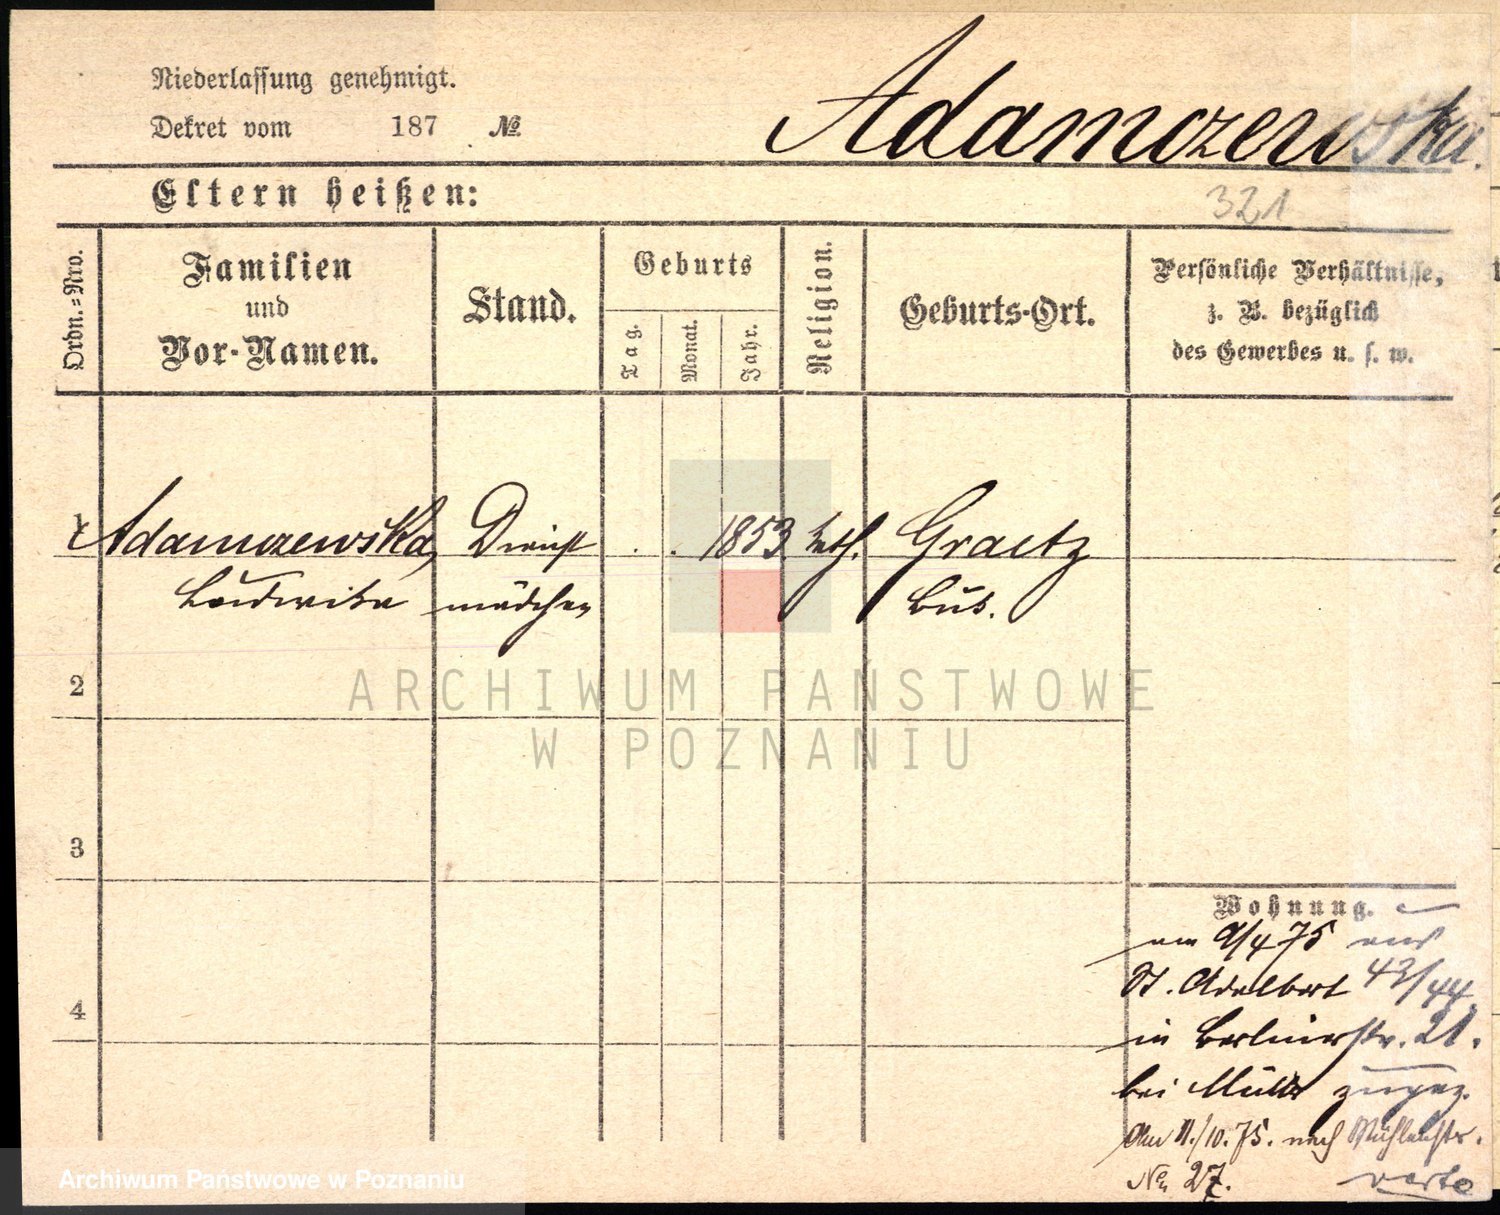 Niederlassung genehmigt.
Dekret vom 187 №
Adamczewska.
Eltern heißen:
321
Ordn.=Nro.
Familien
und
Vor-Namen.
Stand.
Geburts
Tag.
Monat.
Jahr.
Religion.
Geburts-Ort.
Persönliche Verhältnisse,
z. B. bezüglich
des Gewerbes u. s. w.
1 Adamczewska, Dienst . . 1853. kath. Graetz
Ludwika mädchen Buk.
2
ARCHIWUM PAŃSTWOWE
W POZNANIU
3
Wohnung.
am 9/4 75 aus
St. Adalbert 43/44.
4
in Berlinerstr. 21.
bei Müller zugez.
Am 11./10.75. nach Mühlenstr.
No. 27. verte
Archiwum Państwowe w Poznaniu